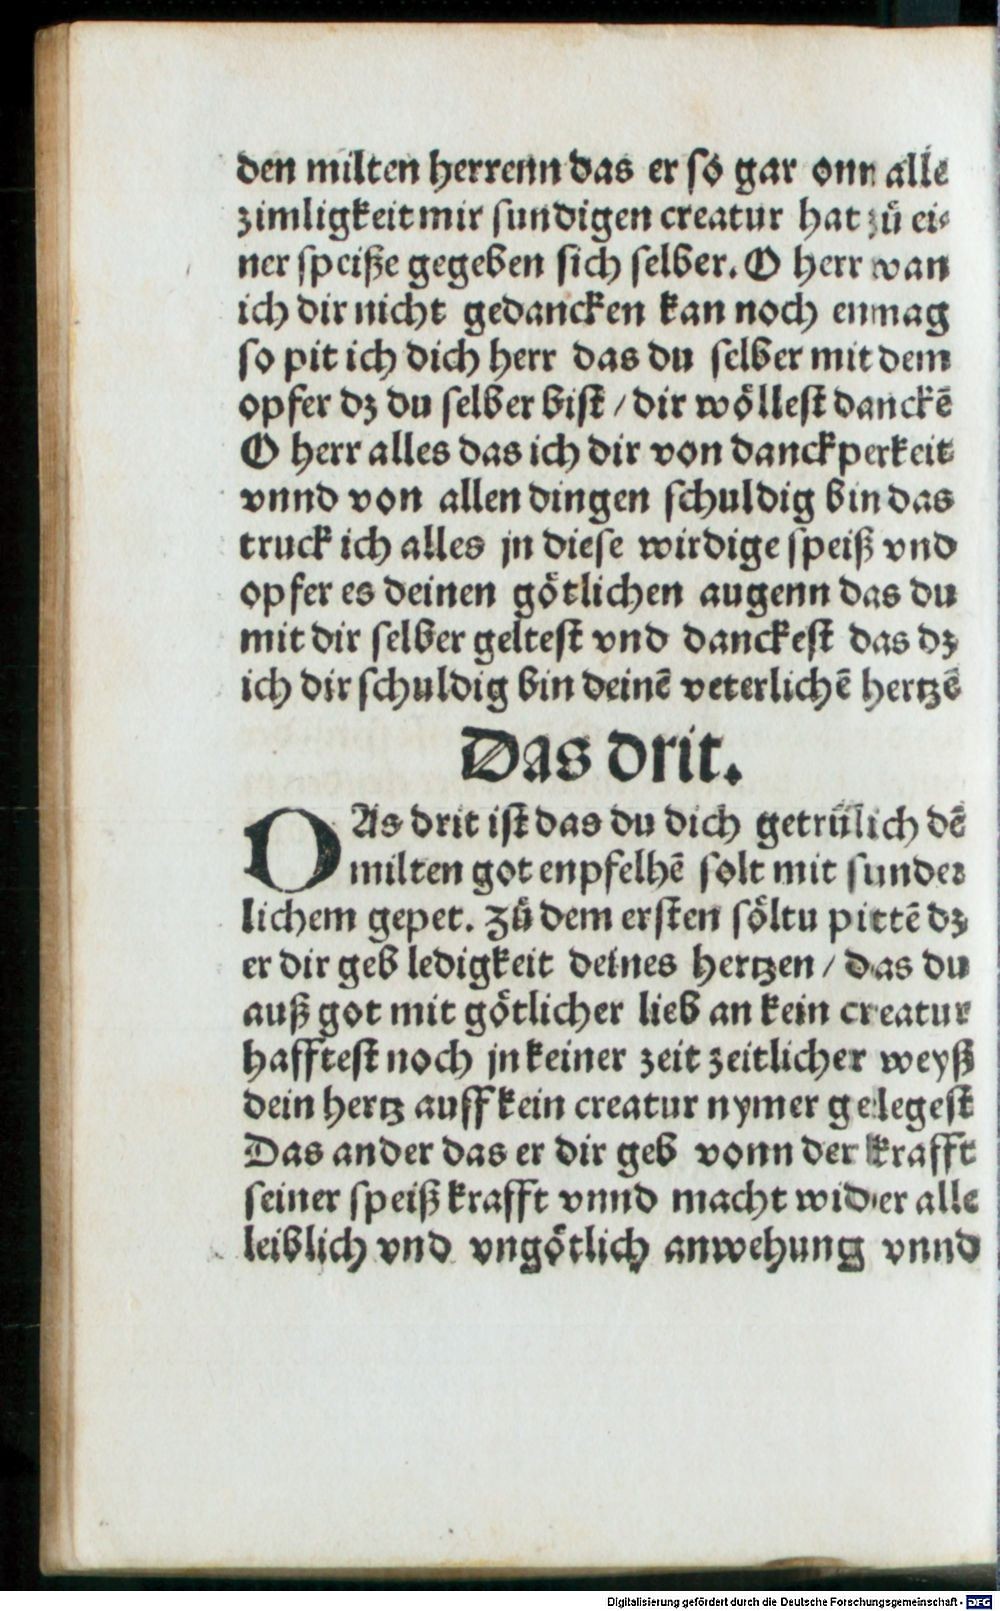 den milten herrenn das er so gar onn alle
zimligkeit mir sundigen creatur hat zů ei⸗
ner speiße gegeben sich selber. O herr wan
ich dir nicht gedancken kan noch enmag
so pit ich dich herr das du selber mit dem
opfer dz du selber bist / dir wöllest danckē
O herr alles das ich dir von danckperkeit
vnnd von allen dingen schuldig bin das
truck ich alles jn diese wirdige speiß vnd
opfer es deinen götlichen augenn das du
mit dir selber geltest vnd danckest das dz
ich dir schuldig bin deinē veterlichē hertzē
Das drit.
OAs drit ist das du dich getrülich dē
milten got enpfelhē solt mit sunder
lichem gepet. Zů dem ersten söltu pittē dz
er dir geb ledigkeit deines hertzen / das du
auß got mit götlicher lieb an kein creatur
hafftest noch jn keiner zeit zeitlicher weyß
dein hertz auff kein creatur nymer gelegest
Das ander das er dir geb vonn der krafft
seiner speiß krafft vnnd macht wider alle
leiblich vnd vngötlich anwehung vnnd
Digitalisierung gefördert durch die Deutsche Forschungsgemeinschaft - DFG